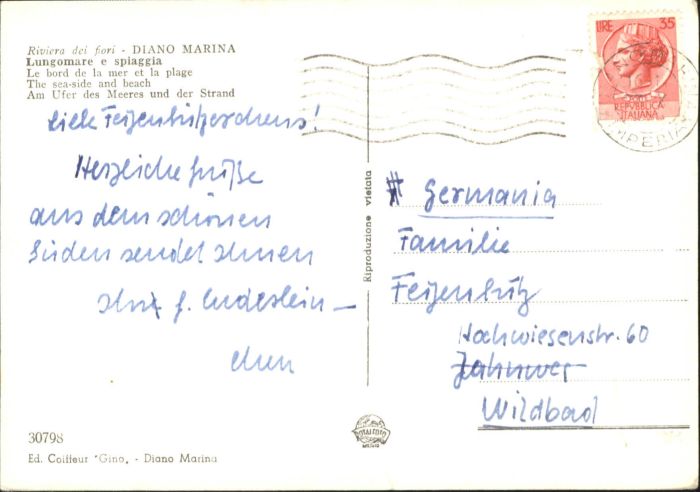 Riviera dei fiori - DIANO MARINA
Lungomare e spiaggia
Le bord de la mer et la plage
The sea-side and beach
Am Ufer des Meeres und der Strand
Herzliche Grüße
aus dem schönen
Süden sendet Ihnen
Ihr
30798
Ed. Coiffeur "Gino„ - Diano Marina
Riproduzione vietata
LIRE 35
REPVBBLICA
ITALIANA
IMPERIA
Germania
Familie
Feizenbütz
Hochwiesenstr. 60
Wildbad